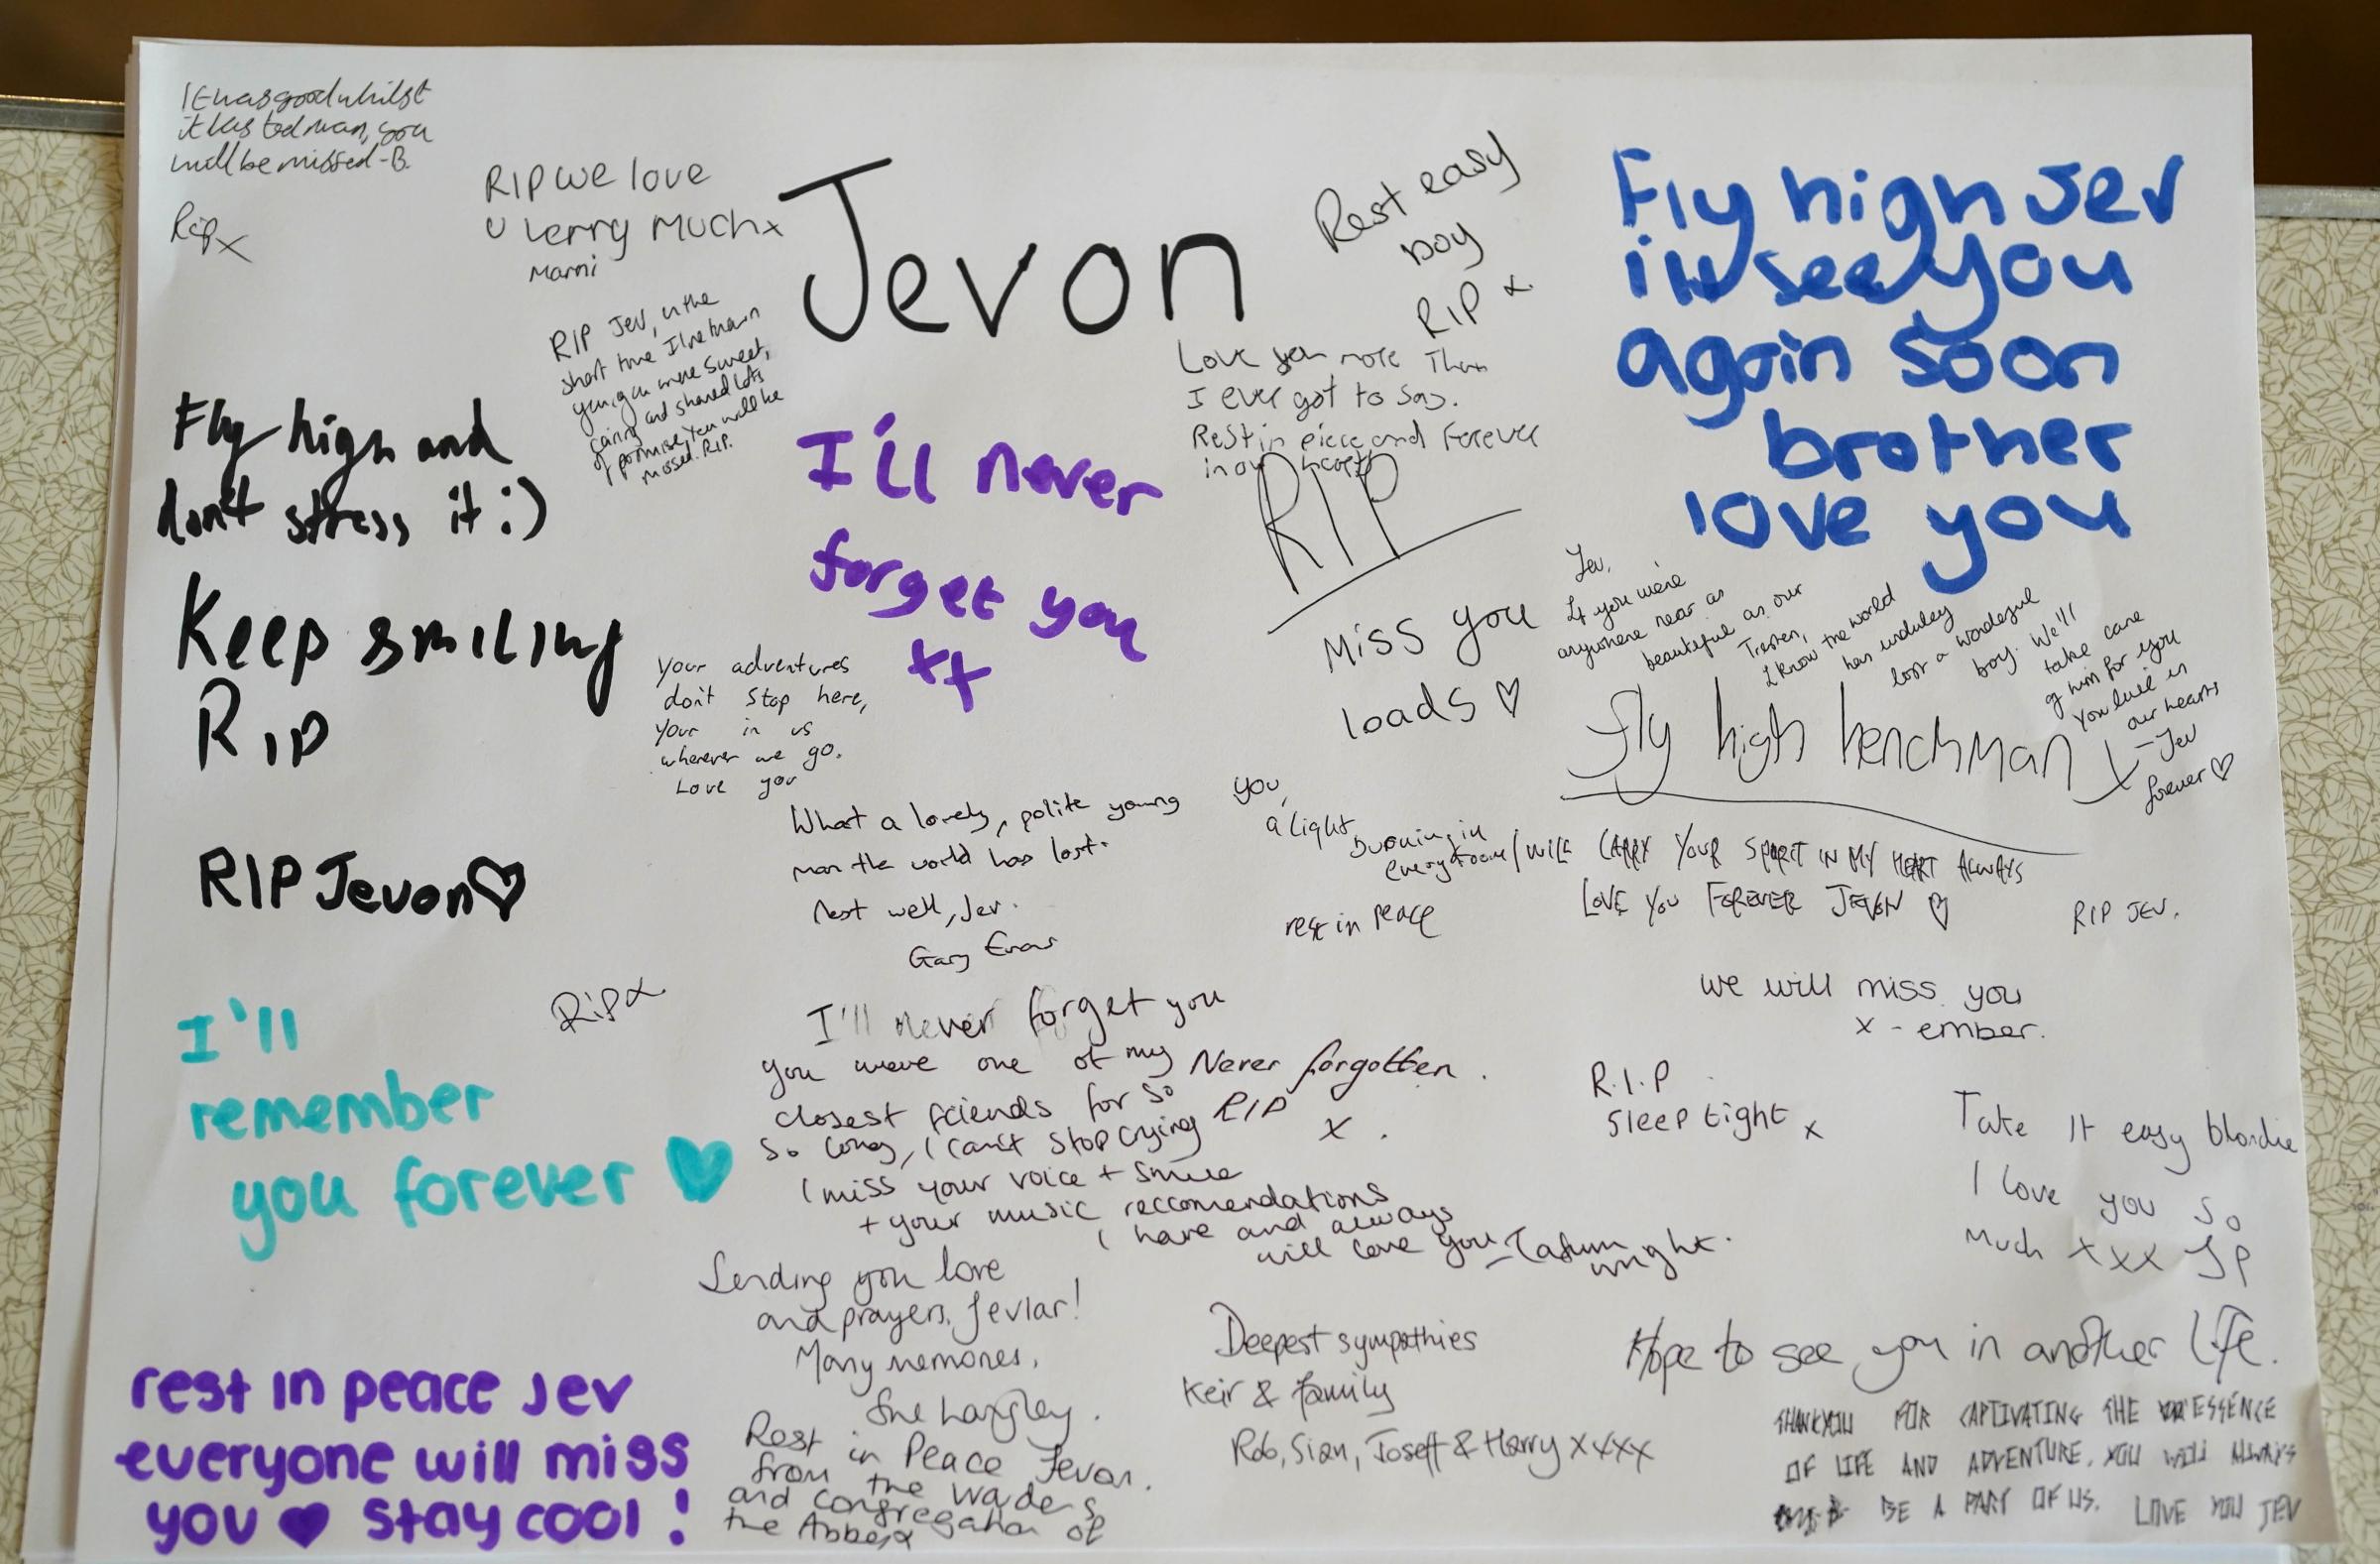 It was good whilst
it lasted man, you
will be missed - B.
Rip x
RIP we love
u verry much x
Marni
Jevon
Rest easy
boy
RIP x
Fly high Jev
ill see you
again soon
brother
love you
RIP Jev, in the
short time I've known
you, you were sweet,
caring and shared lots
of promise, you will be
missed. RIP.
Love you more than
I ever got to say.
Rest in piece and forever
in our hearts
Fly high and
don't stress it :)
Keep smiling
RIP
I'll never
forget you
xx
RIP
Miss you
loads ♡
Jev,
If you were
anywhere near as
beautiful as our
I know the world
has unduley
lost a wonderful
boy. We'll
take care
of him for you
You live in
our hearts
- Jev
forever ♡
Fly high henchman x
Your adventures
don't stop here,
your in us
wherever we go.
Love you
What a lovely, polite young
man the world has lost.
Rest well, Jev.
Gary Evans
you,
a light
burning in
every room
rest in peace
I WILL CARRY YOUR SPIRIT IN MY HEART ALWAYS
LOVE YOU FOREVER JEVON ♡
RIP JEV.
RIP Jevon ♡
Rip x
I'll
remember
you forever ♥
I'll never forget you
you were one of my
closest friends for so
so long, I can't stop crying
I miss your voice + smile
+ your music reccomendations
I have and always
will love you - Tatum
wright.
Never forgotten.
RIP
x.
we will miss you
x - ember.
R.I.P
Sleep tight x
Take it easy blondie
I love you so
much xxx JP
Sending you love
and prayers, Jevlar!
Many memories,
Sue Langley.
Deepest sympathies
Keir & family
Rob, Sian, Joseff & Harry xxxx
Hope to see you in another life.
THANKYOU FOR CAPTIVATING THE ESSENCE
OF LIFE AND ADVENTURE. YOU WILL ALWAYS
BE A PART OF US. LOVE YOU JEV
rest in peace Jev
everyone will miss
you ♥ stay cool!
Rest in Peace Jevon.
from the Waders
and congregation of
the Abbey